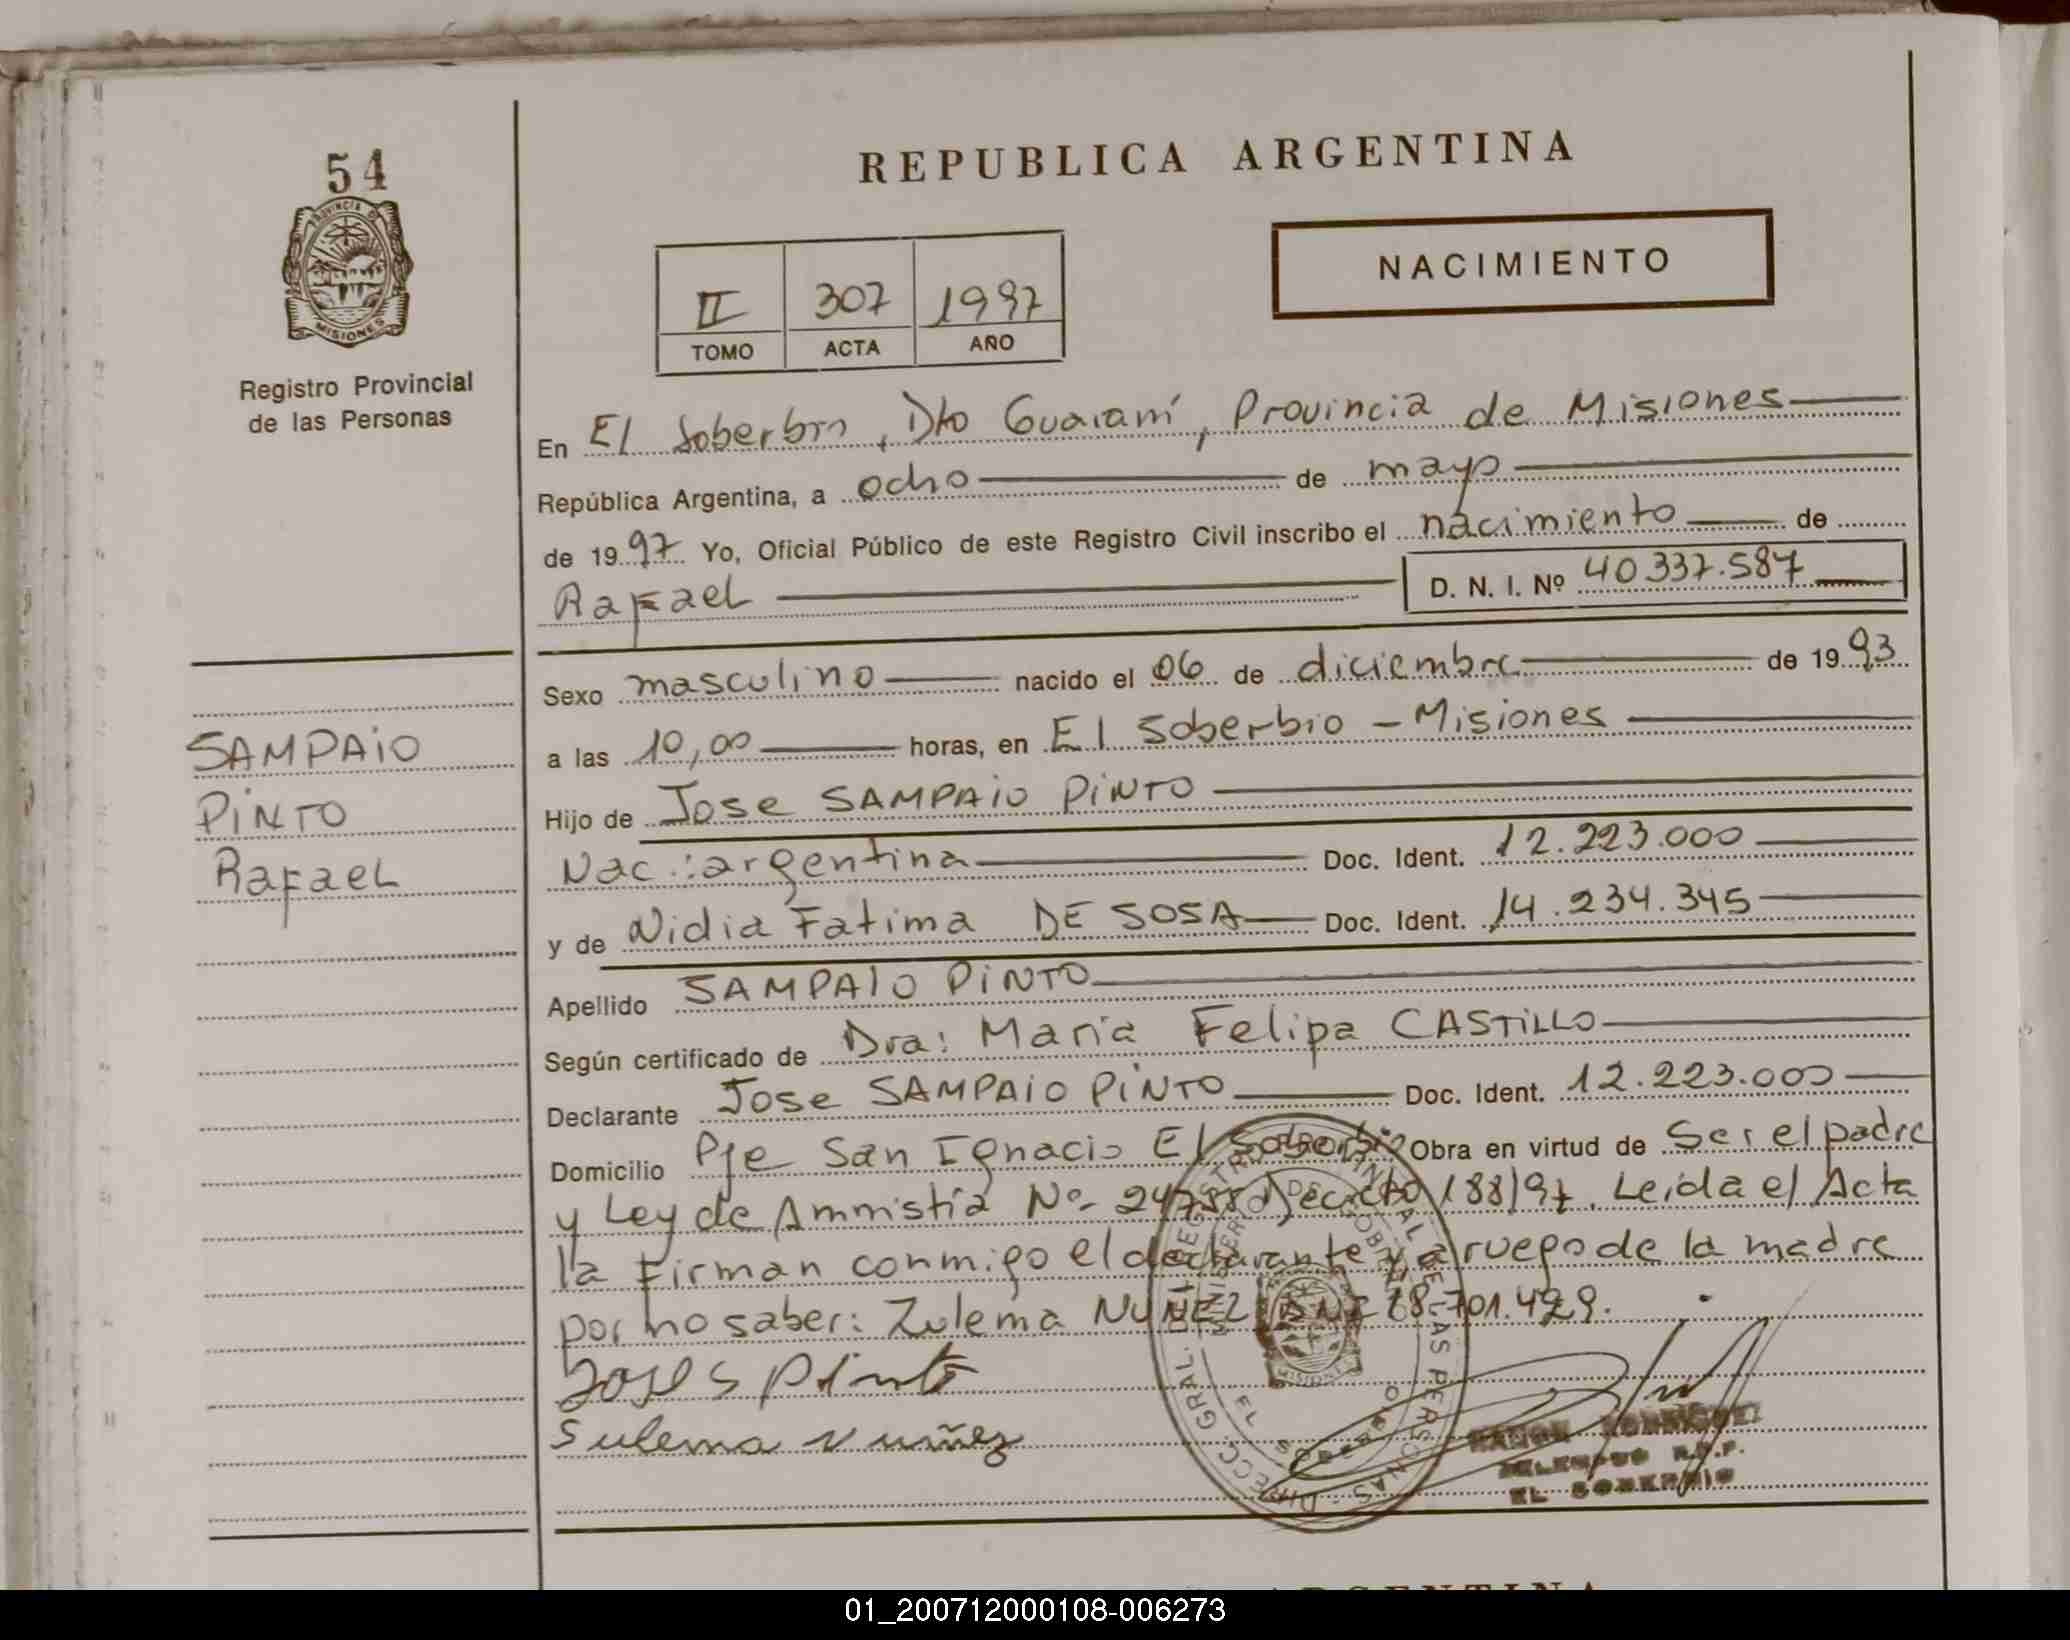 54
PROVINCIA DE
MISIONES
Registro Provincial
de las Personas
SAMPAIO
PINTO
Rafael
REPUBLICA ARGENTINA
II 307 1997
TOMO ACTA AÑO
NACIMIENTO
En El Soberbio, Dto Guaraní, Provincia de Misiones
República Argentina, a ocho de mayo
de 1997 Yo, Oficial Público de este Registro Civil inscribo el nacimiento de
Rafael D. N. I. Nº 40337.587
Sexo masculino nacido el 06 de diciembre de 1993
a las 10,00 horas, en El Soberbio - Misiones
Hijo de Jose SAMPAIO PINTO
Nac.: argentina Doc. Ident. 12.223.000
y de Nidia Fatima DE SOSA Doc. Ident. 14.234.345
Apellido SAMPAIO PINTO
Según certificado de Dra: Maria Felipa CASTILLO
Declarante Jose SAMPAIO PINTO Doc. Ident. 12.223.000
Domicilio Pje San Ignacio El Soberbio Obra en virtud de Ser el padre
y Ley de Amnistía Nº 24755 Decreto 188/97. Leida el Acta
la firman conmigo el declarante y a ruego de la madre
por no saber: Zulema NUÑEZ DNI 18.701.429.
Jose S Pinto
Sulema Nuñez
RAMON RODRIGUEZ
DELEGADO R.P.P.
EL SOBERBIO
ARGENTINA
01_200712000108-006273